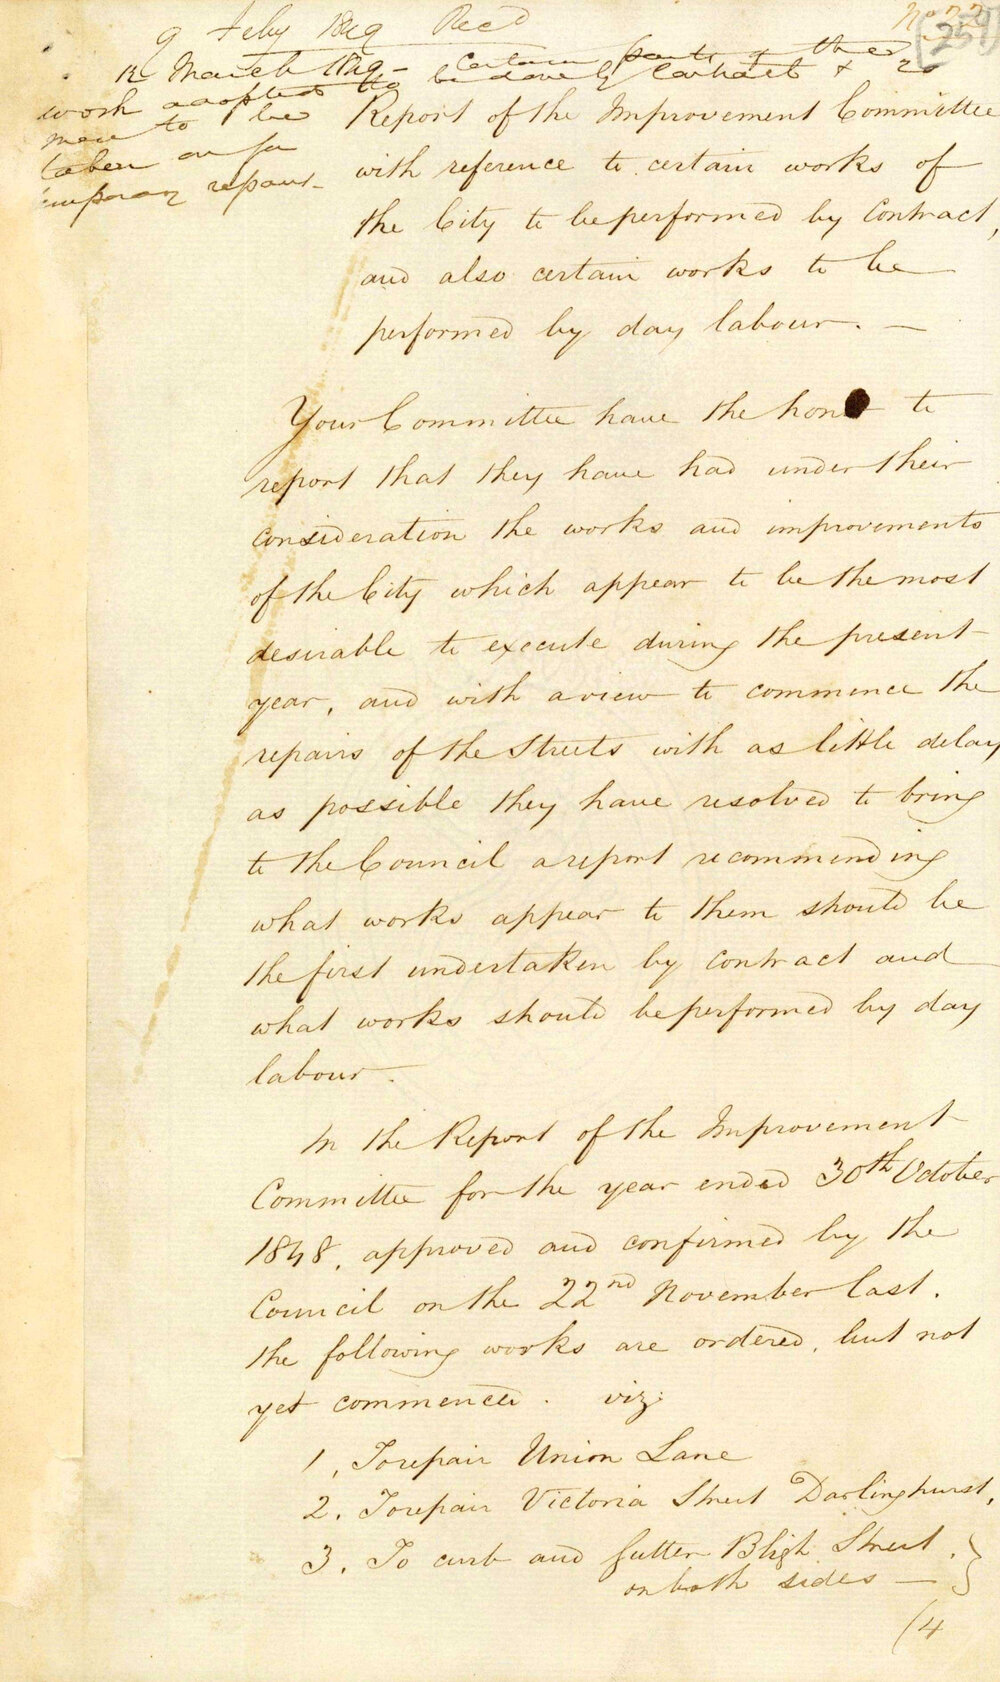 9 Feby 1849 Recd
No 22
(259)
12 March 1849 - Certain parts of the
work adopted to be done by Contract & 
men to be
taken on for
temporary repairs -
Report of the Improvement Committee
with reference to certain works of
the City to be performed by Contract,
and also certain works to be
performed by day labour. —
Your Committee have the honor to
report that they have had under their
consideration the works and improvements
of the City which appear to be the most
desirable to execute during the present
year, and with a view to commence the
repairs of the Streets with as little delay
as possible they have resolved to bring
to the Council a report recommending
what works appear to them should be
the first undertaken by Contract and
what works should be performed by day
labour.
In the Report of the Improvement
Committee for the year ended 30th October
1848, approved and confirmed by the
Council on the 22nd November last.
the following works are ordered, but not
yet commenced. viz:
1, To repair Union Lane
2. To repair Victoria Street Darlinghurst,
3. To curb and gutter Bligh Street. }
on both sides —
(4